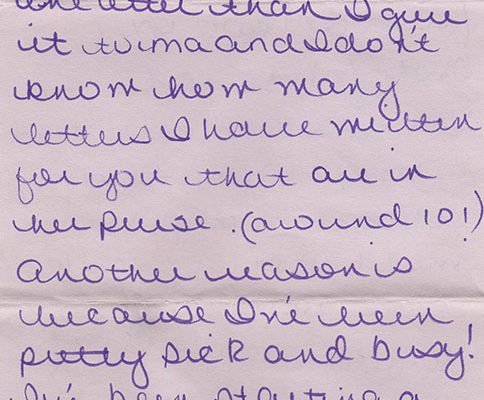 one letter than I give
it to ma and I don't
know how many
letters I have written
for you that are in
her purse. (around 10!)
Another reason is
because I've been
pretty sick and busy!
I've been starting a